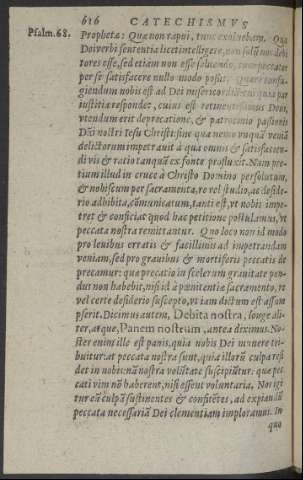 616 CATECHISMVS
Psalm.68. Prophetæ: Quæ non rapui, tunc exoluebam. Qua
Dei verbi sententia licet intelligere, non solũ nos debi
tores esse, sed etiam non esse soluendo, cum peccator
per se satisfacere nullo modo possit. Quare confu-
giendum nobis est ad Dei misericordiam: cui quia par
iustitia respondet, cuius est retinentissimus Deus,
vtendum erit deprecatione, & patrocinio passionis
Dñi nostri Iesu Christi: sine qua nemo vnquã veniã
delictorum impetrauit à qua omnis & satisfacien-
di vis & ratio tanquã ex fonte profluxit. Nam pre-
tium illud in cruce à Christo Domino persolutum,
& nobiscum per sacramenta, re vel studio, ac deside-
rio adhibita, cõmunicatum, tanti est, vt nobis impe-
tret & conficiat quod hac petitione postulamus, vt
peccata nostra remittantur. Quo loco non id modo
pro leuibus erratis & facillimis ad impetrandam
veniam, sed pro grauibus & mortiferis peccatis de
precamur: quæ precatio in scelerum grauitate pon-
dus non habebit, nisi id à pœnitentiæ sacramento, re
vel certe desiderio suscepto, vt iam dictum est assum
pserit. Dicimus autem, Debita nostra, longe ali-
ter, atque, Panem nostrum, antea diximus. No-
ster enim ille est panis, quia nobis Dei munere tri-
buitur: at peccata nostra sunt, quia illorũ culpa resi
det in nobis: nã nostra volũtate suscipiũtur: quæ pec
cati vim nõ haberent, nisi essent voluntaria. Nos igi
tur eã culpã sustinentes & confitẽtes, ad expiandũ
peccata necessariã Dei clementiam imploramus. In
quo